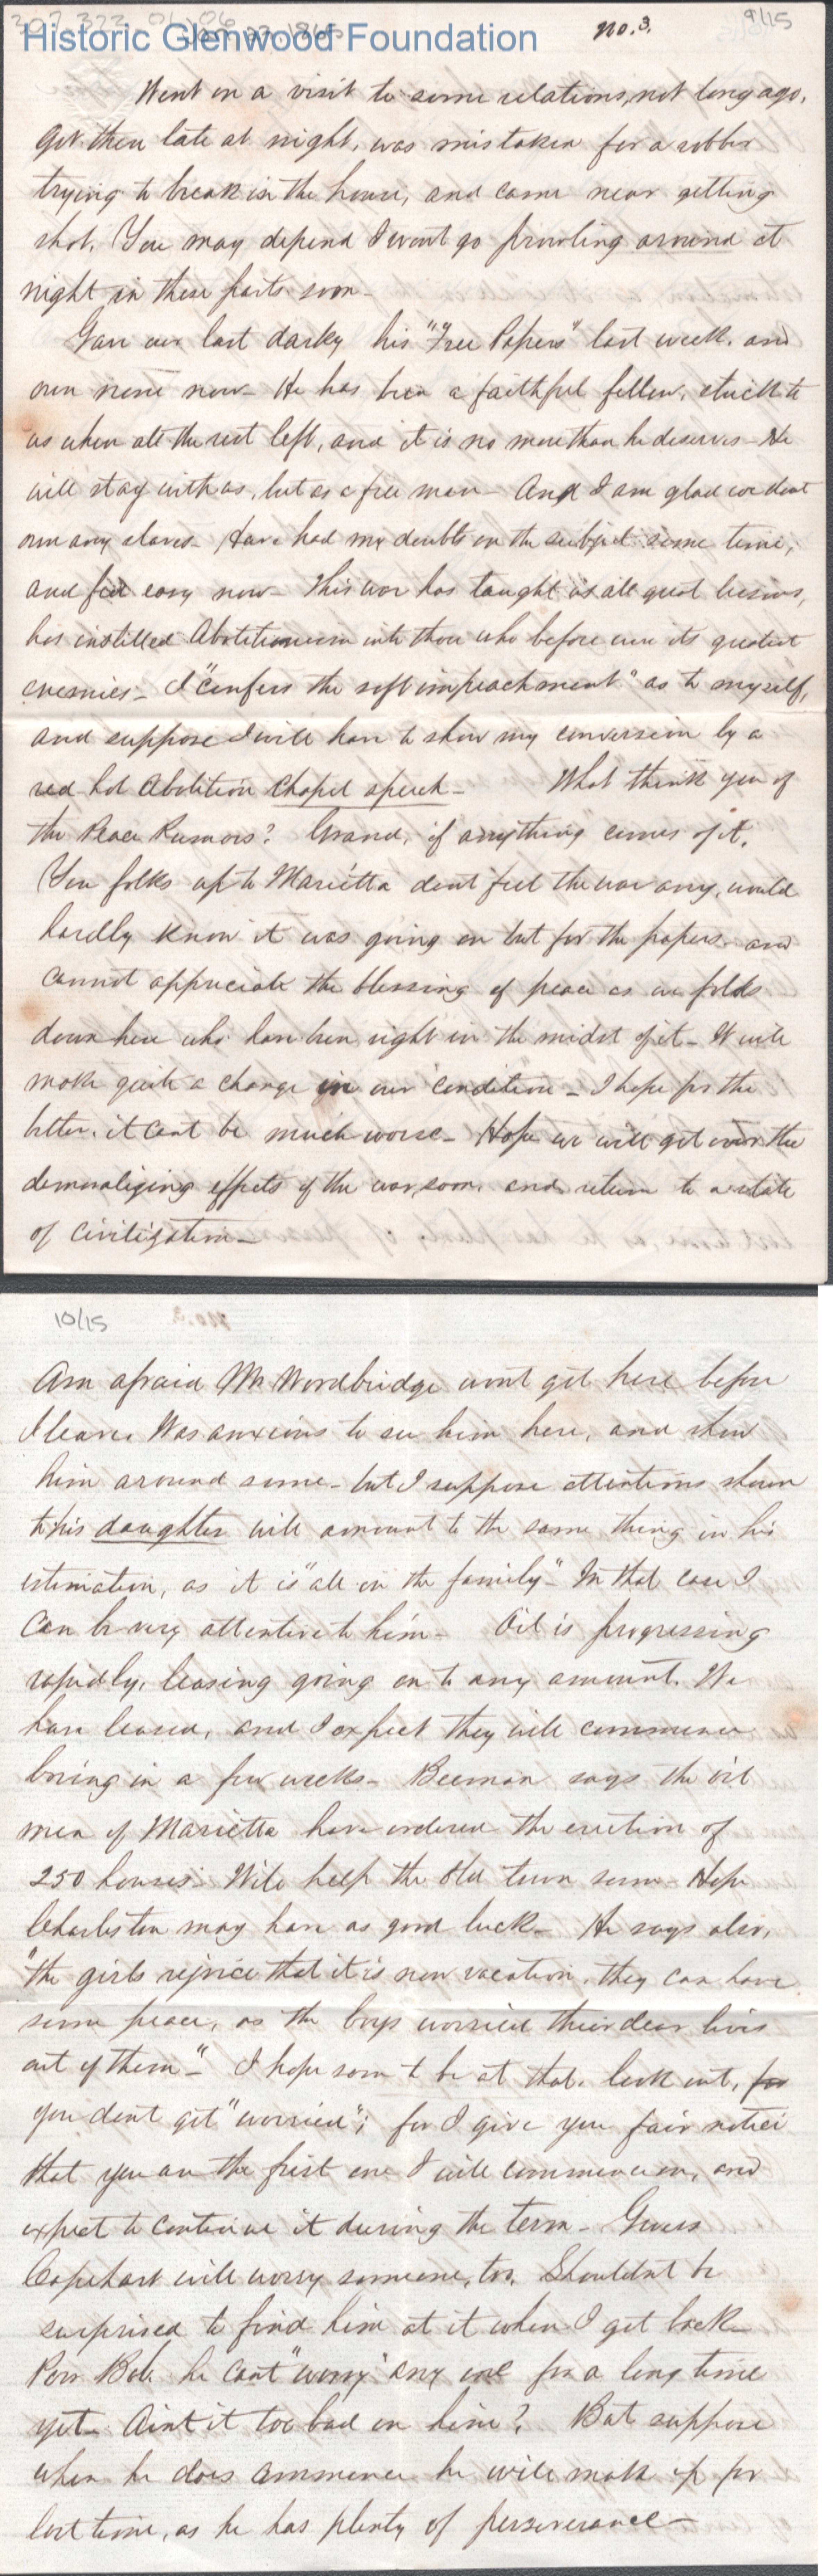 Historic Glenwood Foundation
no. 3.
9/15
Went on a visit to some relations, not long ago,
Got there late at night, was mistaken for a robber
trying to break in the house, and came near getting
shot. You may depend I wont go prowling around at
night in these parts soon -
Gave our last darky his "Free Papers" last week. and
own none now - He has been a faithful fellow, stuck to
us when all the rest left, and it is no more than he deserves - He
will stay with us, but as a free man - And I am glad we dont
own any slaves - Have had my doubts on the subject some time,
and feel easy now - This war has taught us all great lessons,
has instilled Abolitionism into those who before were its greatest
enemies - I "confess the soft impeachment" as to myself,
and suppose I will have to show my conversion by a
red-hot Abolition Chapel speech - What think you of
the Peace Rumors? Grand, if anything comes of it.
You folks up to Marietta dont feel the war any, would
hardly know it was going on but for the papers - and
cannot appreciate the blessing of peace as we folks
down here who have been right in the midst of it - It will
make quite a change in our condition - I hope for the
better, it cant be much worse - Hope we will get over the
demoralizing effects of the war, soon, and return to a state
of civilization -
10/15
Am afraid Mr Woodbridge wont get here before
I leave. Was anxious to see him here, and show
him around some - but I suppose attentions shown
to his daughter will amount to the same thing in his
estimation, as it is "all in the family" - In that case I
can be very attentive to him - Oil is progressing
rapidly, leasing going on to any amount. We
have leased, and I expect they will commence
boring in a few weeks - Beeman says the oil
men of Marietta have ordered the erection of
250 houses - Will help the old town some - Hope
Charleston may have as good luck - He says also,
"the girls rejoice that it is now vacation, they can have
some peace, as the boys worried their dear lives
out of them" - I hope soon to be at that. look out, for
you dont get "worried"; for I give you fair notice
that you are the first one I will commence on, and
expect to continue it during the term - Guess
Capehart will worry someone, too. Shouldnt be
surprised to find him at it when I get back -
Poor Bob. he cant "worry" any one for a long time
yet - Aint it too bad on him? But suppose
when he does commence he will make up for
lost time, as he has plenty of perseverance -